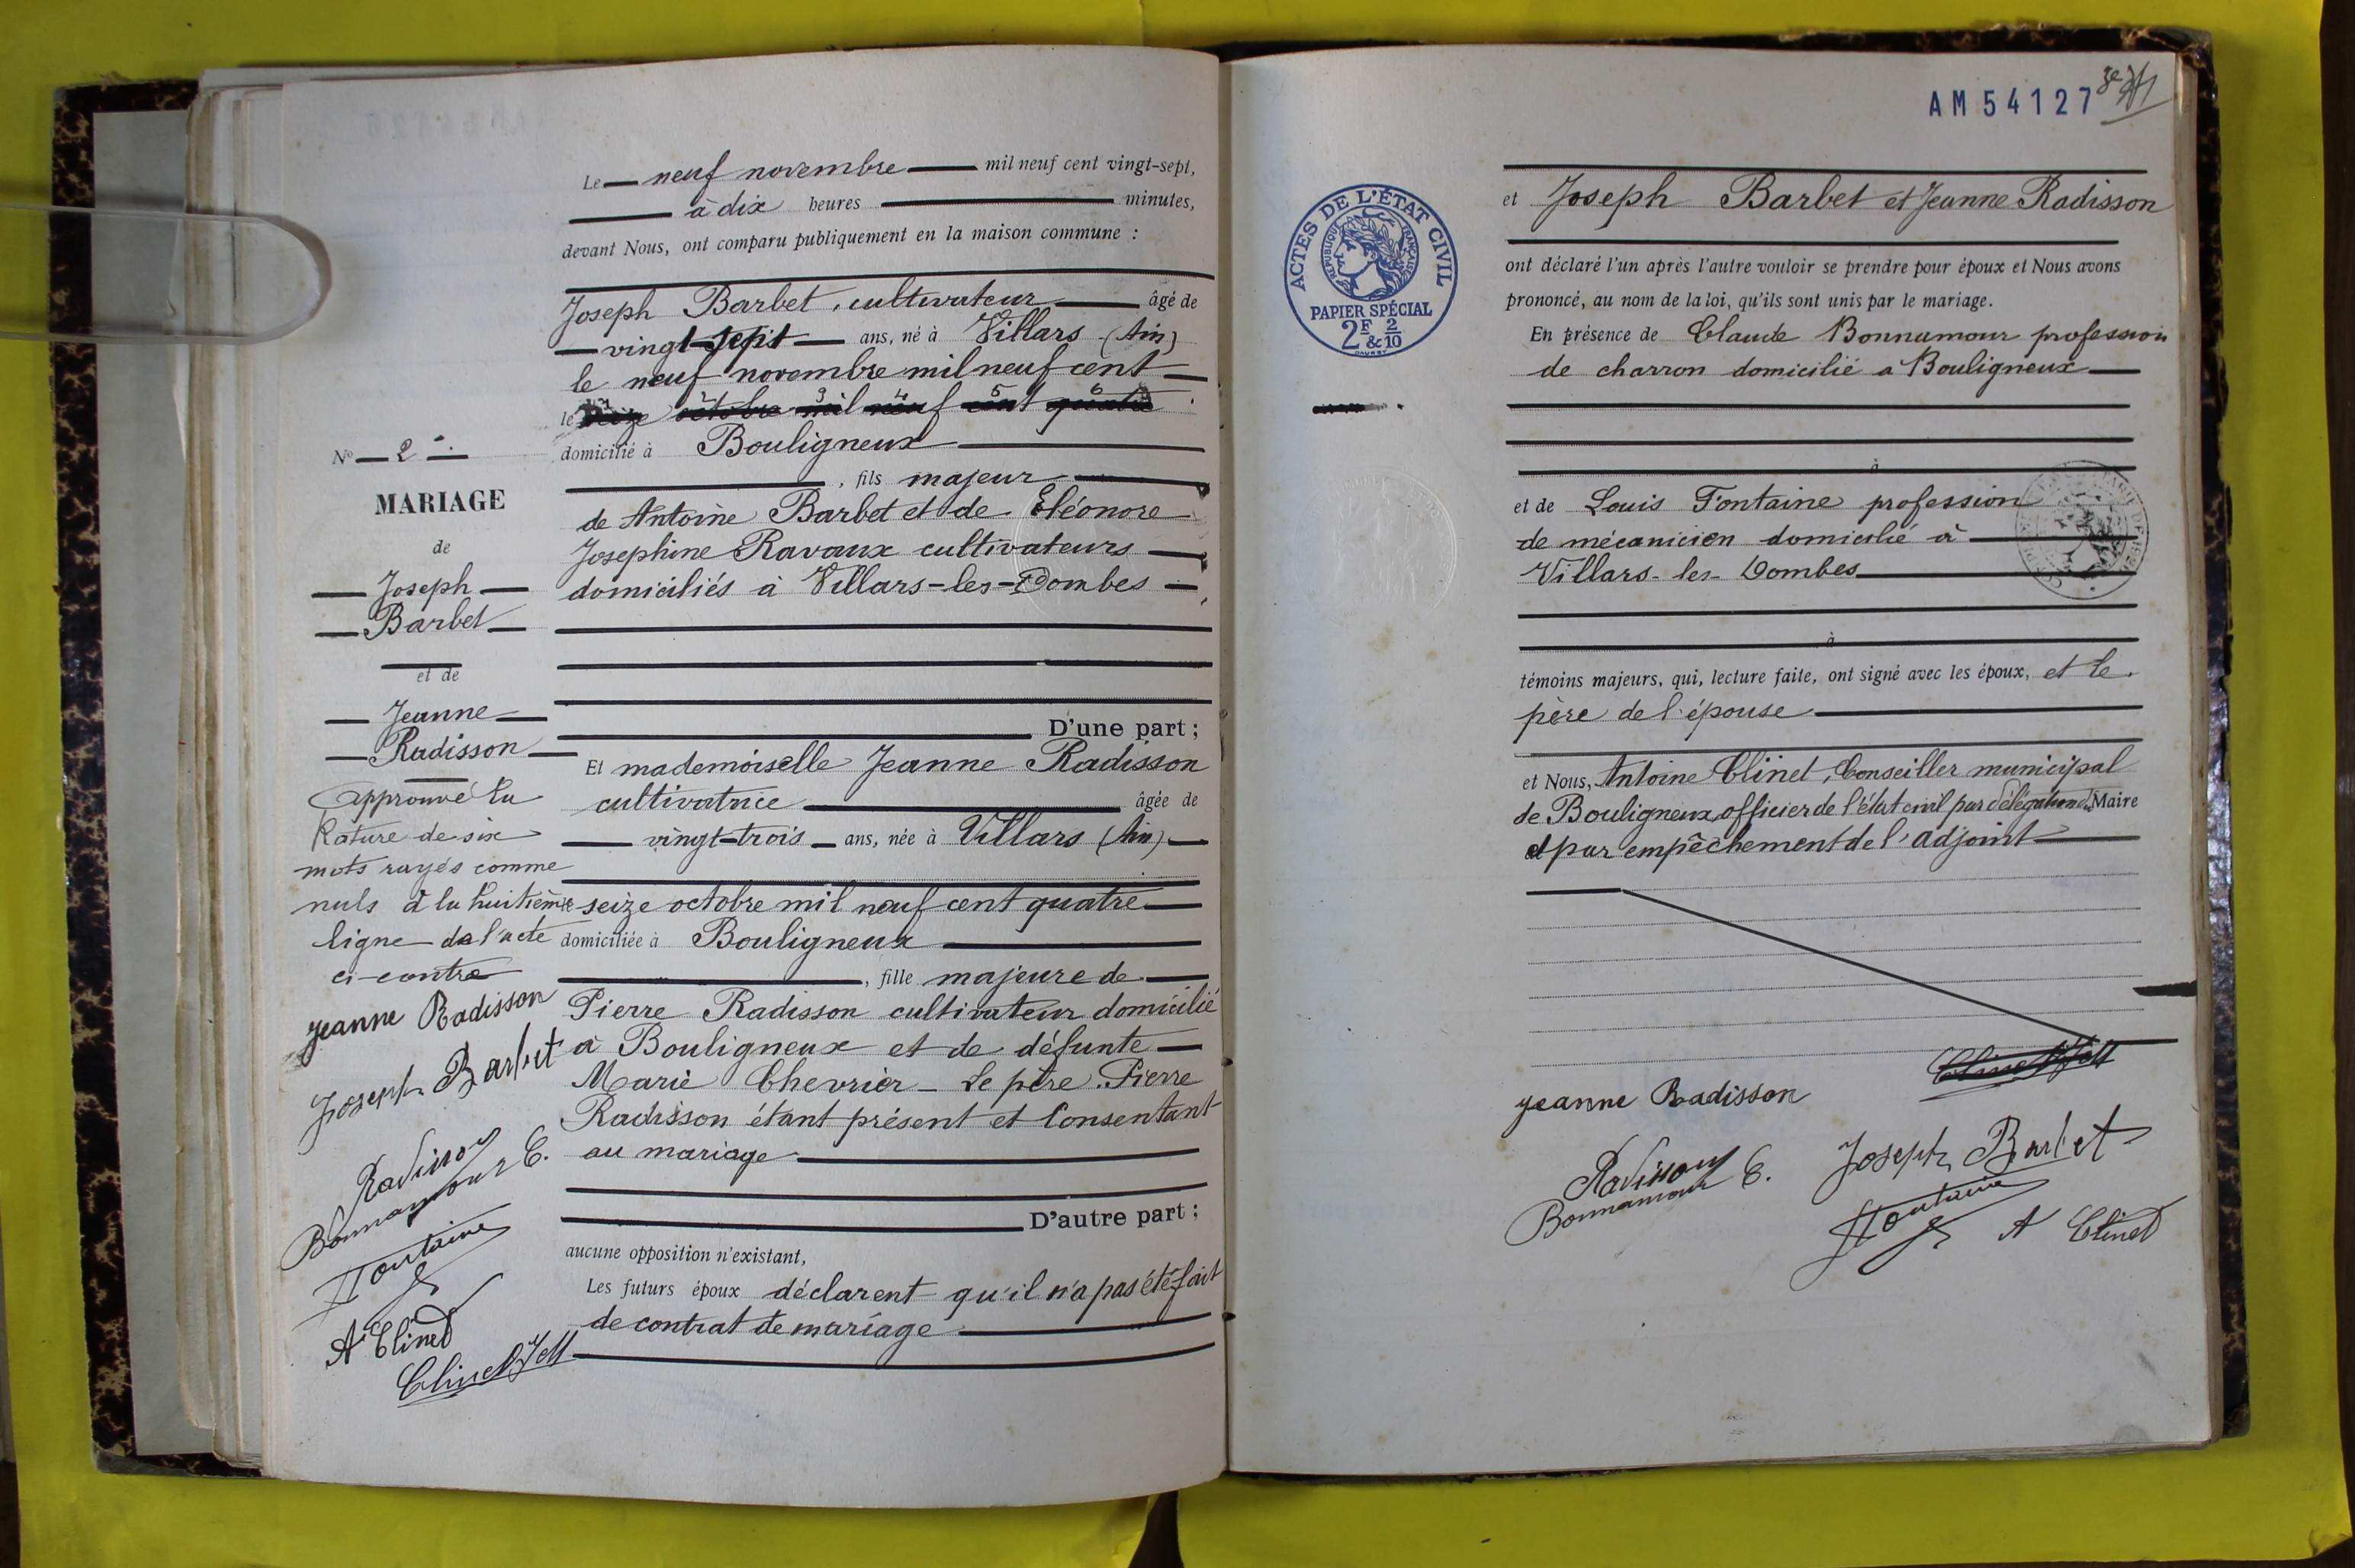 Le neuf novembre mil neuf cent vingt-sept,
à dix heures minutes,
devant Nous, ont comparu publiquement en la maison commune :
Joseph Barbet, cultivateur âgé de
vingt-sept ans, né à Villars (Ain)
le neuf novembre mil neuf cent
1 2 3 4 5 6
le seize octobre mil neuf cent quatre
domicilié à Bouligneux
, fils majeur
de Antoine Barbet et de Eléonore
Josephine Ravaux cultivateurs
domiciliés à Villars-les-Dombes
D'une part ;
Et mademoiselle Jeanne Radisson
cultivatrice âgée de
vingt-trois ans, née à Villars (Ain)
seize octobre mil neuf cent quatre
domiciliée à Bouligneux
, fille majeure de
Pierre Radisson cultivateur domicilié
à Bouligneux et de défunte
Marie Chevrier - Le père Pierre
Radisson étant présent et Consentant
au mariage
D'autre part ;
aucune opposition n'existant,
Les futurs époux déclarent qu'il n'a pas été fait
de contrat de mariage
No 2
MARIAGE
de
Joseph
Barbet
et de
Jeanne
Radisson
Approuvé la
Rature de six
mots rayés comme
nuls à la huitième
ligne de l'acte
ci-contre
Jeanne Radisson
Joseph Barbet
Radisson
Bonnamour C.
Fontaine
A Clinet
AM 54127
ACTES DE L'ÉTAT CIVIL
RÉPUBLIQUE FRANÇAISE
PAPIER SPÉCIAL
2F & 2/10
et Joseph Barbet et Jeanne Radisson
ont déclaré l'un après l'autre vouloir se prendre pour époux et Nous avons
prononcé, au nom de la loi, qu'ils sont unis par le mariage.
En présence de Claude Bonnamour profession
de charron domicilié a Bouligneux
à
et de Louis Fontaine profession
de mécanicien domicilié à
Villars-les-Dombes
à
témoins majeurs, qui, lecture faite, ont signé avec les époux, et le
père de l'épouse
et Nous, Antoine Clinet, Conseiller municipal
de Bouligneux, officier de l'état civil par délégation du Maire
et par empêchement de l'adjoint
Jeanne Radisson
Radisson
Joseph Barbet
Bonnamour C.
Fontaine
A Clinet